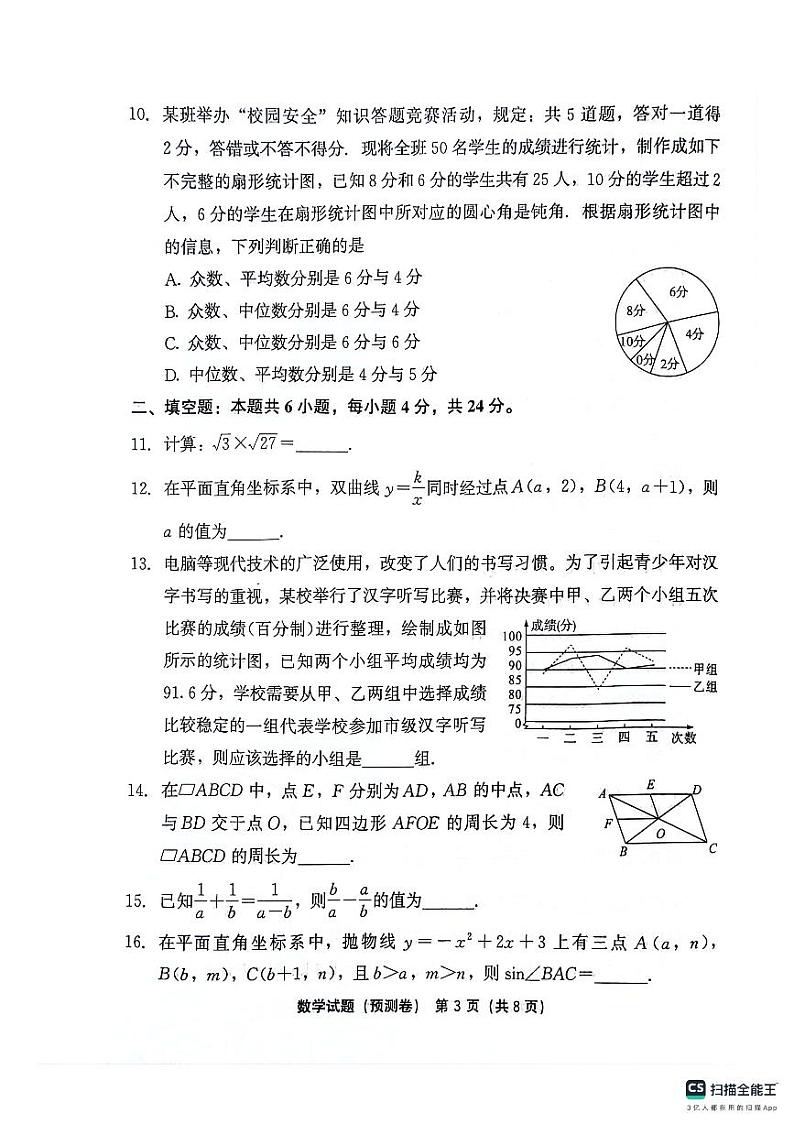 10. 某班举办“校园安全”知识答题竞赛活动，规定：共5道题，答对一道得
2分，答错或不答不得分. 现将全班50名学生的成绩进行统计，制作成如下
不完整的扇形统计图，已知8分和6分的学生共有25人，10分的学生超过2
人，6分的学生在扇形统计图中所对应的圆心角是钝角. 根据扇形统计图中
的信息，下列判断正确的是
A. 众数、平均数分别是6分与4分
B. 众数、中位数分别是6分与4分
C. 众数、中位数分别是6分与6分
D. 中位数、平均数分别是4分与5分
6分
8分
4分
10分
0分
2分
二、填空题：本题共6小题，每小题4分，共24分。
11. 计算：√3×√27=______.
12. 在平面直角坐标系中，双曲线 y=k/x 同时经过点A(a，2)，B(4，a+1)，则
a 的值为______.
13. 电脑等现代技术的广泛使用，改变了人们的书写习惯。为了引起青少年对汉
字书写的重视，某校举行了汉字听写比赛，并将决赛中甲、乙两个小组五次
比赛的成绩(百分制)进行整理，绘制成如图
所示的统计图，已知两个小组平均成绩均为
91.6分，学校需要从甲、乙两组中选择成绩
比较稳定的一组代表学校参加市级汉字听写
比赛，则应该选择的小组是______组.
成绩(分)
100
95
90
85
80
75
0
甲组
乙组
一 二 三 四 五 次数
14. 在▱ABCD 中，点 E，F 分别为AD，AB 的中点，AC
与BD 交于点O，已知四边形 AFOE 的周长为 4，则
▱ABCD 的周长为______.
A E D
F O
B C
15. 已知1/a+1/b=1/(a-b)，则b/a-a/b的值为______.
16. 在平面直角坐标系中，抛物线 y=-x²+2x+3 上有三点 A(a，n)，
B(b，m)，C(b+1，n)，且 b>a，m>n，则 sin∠BAC=______.
数学试题（预测卷） 第3页（共8页）
CS 扫描全能王
3亿人都在用的扫描App